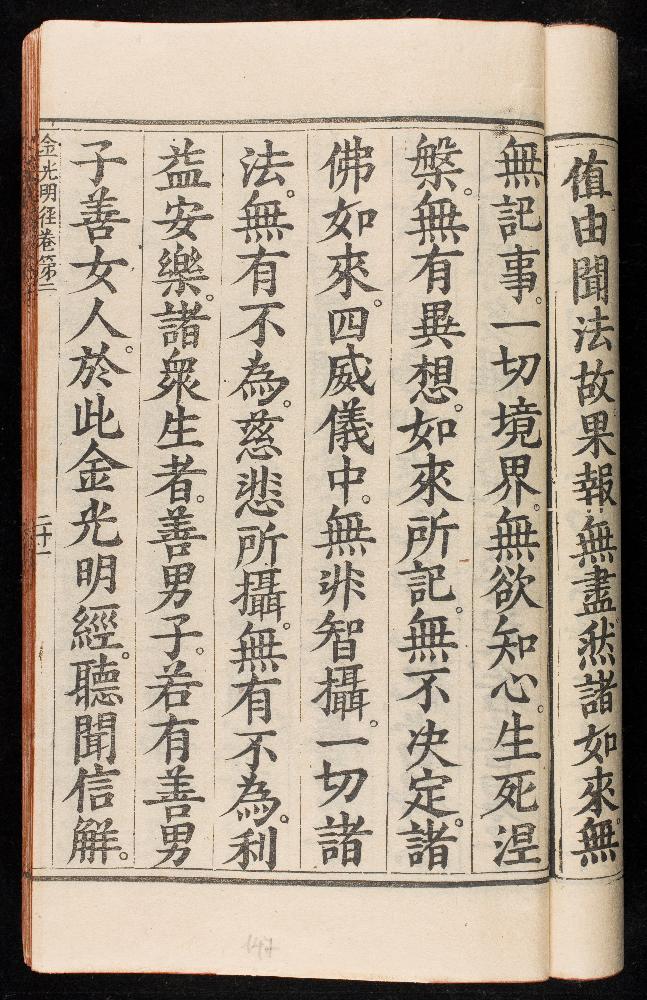 值由聞法故果報無盡然諸如來無
無記事。一切境界。無欲知心。生死涅
槃。無有異想。如來所記。無不决定。諸
佛如來。四威儀中。無非智攝。一切諸
法。無有不為。慈悲所攝。無有不為。利
益安樂。諸衆生者。善男子。若有善男
子善女人。於此金光明經。聽聞信解。
金光明經卷第二
二十一
147